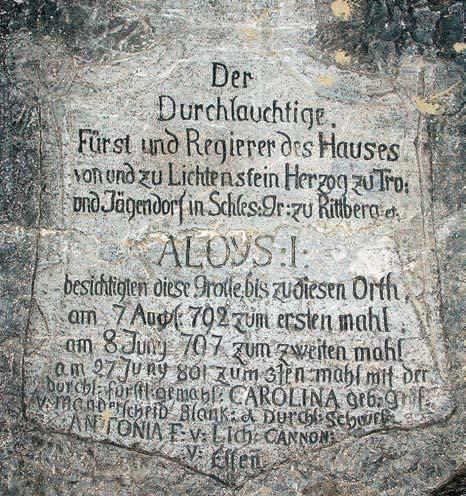 Der
Durchlauchtige.
Fürst und Regierer des Hauses
von und zu Lichtenstein Herzog zu Tro:
und Jägendorf in Schles: gr: zu Rittberg et.
ALOYS: I.
besichtigten diese grotte, bis zu diesen Orth,
am 7 Augst. 792 zum ersten mahl.
am 8 Juny 707 zum zweiten mahl
am 27 Juny 801 zum 3ten mahl mit der
durchl: fürstl gemahl: CAROLINA geb: gräf:
v: manderscheid Blank: & Durchl: Schwest:
ANTONIA F: v: Lich: CANNON:
v: Essen